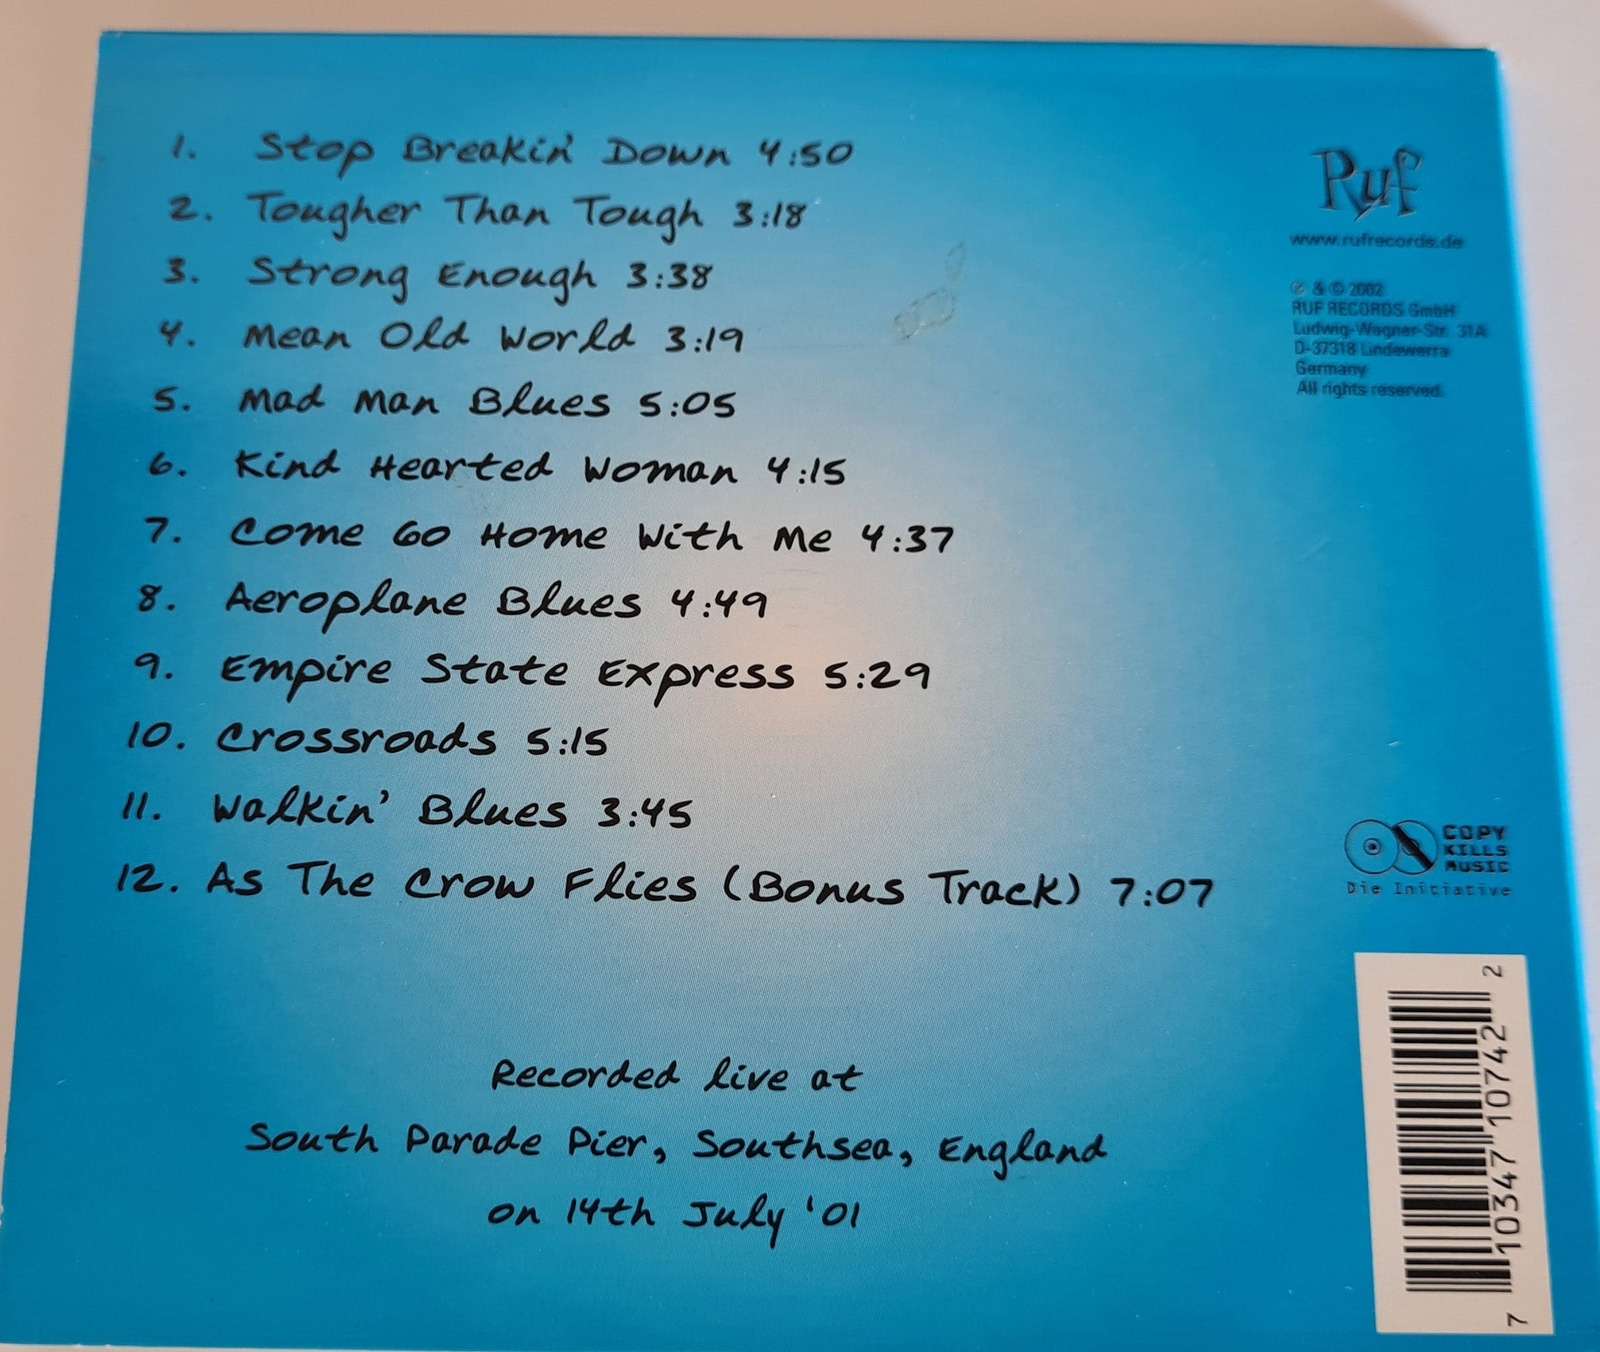 1. Stop Breakin' Down 4:50
2. Tougher Than Tough 3:18
3. Strong Enough 3:38
4. Mean Old World 3:19
5. Mad Man Blues 5:05
6. Kind Hearted Woman 4:15
7. Come Go Home With Me 4:37
8. Aeroplane Blues 4:49
9. Empire State Express 5:29
10. Crossroads 5:15
11. Walkin' Blues 3:45
12. As The Crow Flies (Bonus Track) 7:07
Recorded live at
South Parade Pier, Southsea, England
on 14th July '01
Ruf
www.rufrecords.de
℗ & © 2002
RUF RECORDS GmbH
Ludwig-Wagner-Str. 31A
D-37318 Lindewerra
Germany
All rights reserved.
COPY
KILLS
MUSIC
Die Initiative
7 10347 10742 2